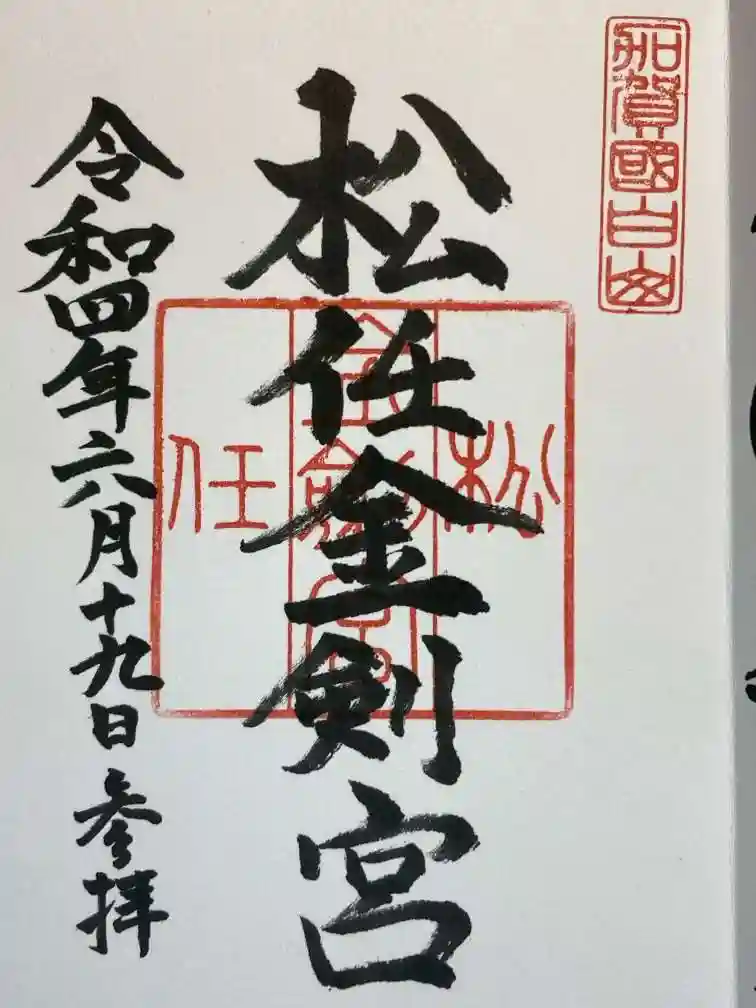 加賀國白山
松任金剣宮
松
金劔宮
任
令和四年六月十九日参拝